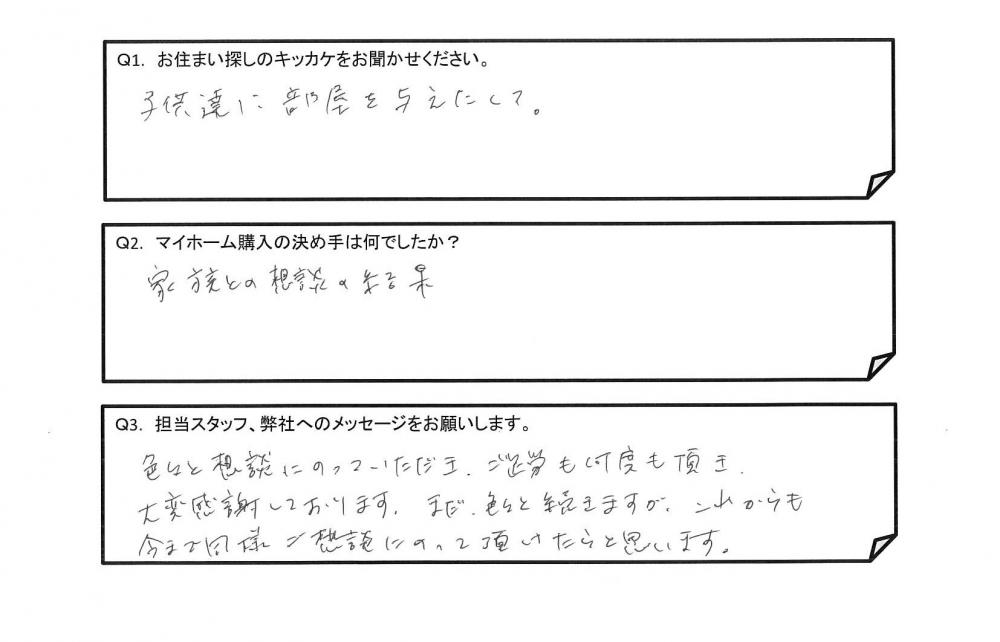 Q1. お住まい探しのキッカケをお聞かせください。
子供達に部屋を与えたくて。
Q2. マイホーム購入の決め手は何でしたか？
家族との想談の結果
Q3. 担当スタッフ、弊社へのメッセージをお願いします。
色々と想談にのっていただき、ご足労も何度も頂き、
大変感謝しております。まだ、色々と続きますが、これからも
今まで同様ご想談にのって頂けたらと思います。